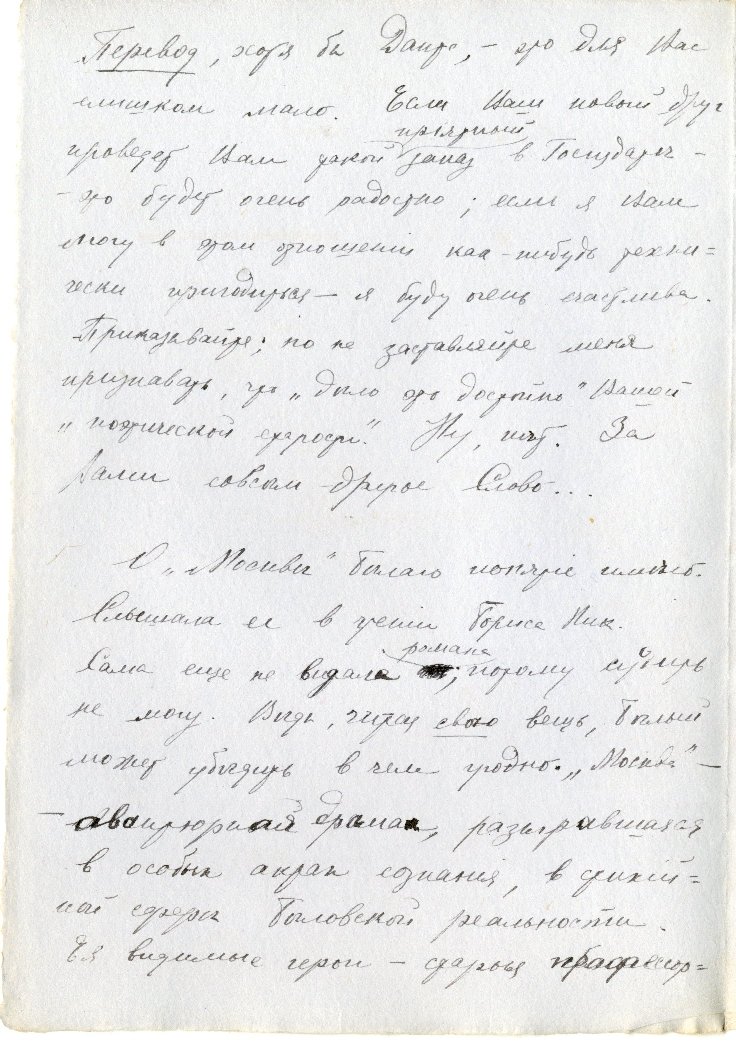 Перевод, хотя бы Данте, – это для Вас
слишком мало. Если Ваш новый друг
приятный
проведет Вам такой заказ в Госиздате –
– это будет очень радостно; если я Вам
могу в этом отношеніи как-нибудь техни=
чески пригодиться – я буду очень счастлива.
Приказывайте; но не заставляйте меня
признавать, что „дѣло это достойно" Вашей
„поэтической старости". Ну, нѣт. За
Вами совсѣм другое Слово...
О „Москвѣ" Бѣлаго понятіе имѣю.
Слышала ее в чтеніи Бориса Ник.
романа
Сама еще не видала ; потому судить
не могу. Вѣдь, читая свою вещь, Бѣлый
может убѣдить в чем угодно. „Москва" –
– авантюрная драма, разыгравшаяся
в особых актах сознанія, в стихій=
ной сферѣ Бѣловской реальности.
Ея видимые герои – старый профессор=